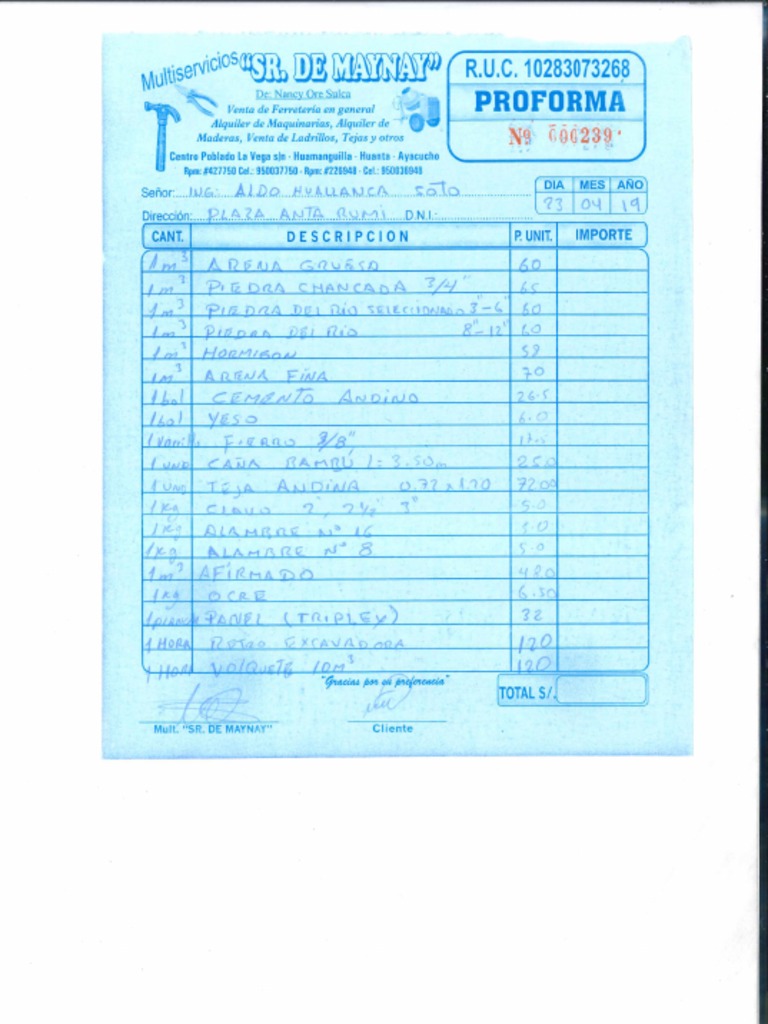 Multiservicios "SR. DE MAYNAY"
De: Nancy Ore Sulca
Venta de Ferretería en general
Alquiler de Maquinarias, Alquiler de
Maderas, Venta de Ladrillos, Tejas y otros
Centro Poblado La Vega s/n - Huamanguilla - Huanta - Ayacucho
Rpm: #427750 Cel.: 950037750 - Rpm: #226948 - Cel.: 950836948
R.U.C. 10283073268
PROFORMA
Nº 000239
Señor: ING: ALDO HUALLANCA SOTO
Dirección: PLAZA ANTA RUMI D.N.I.:
DIA MES AÑO
23 04 19
CANT. DESCRIPCION P. UNIT. IMPORTE
1m³ ARENA GRUESA 60
1m³ PIEDRA CHANCADA 3/4" 65
1m³ PIEDRA DEL RÍO SELECCIONADO 3"-6" 60
1m³ PIEDRA DEL RÍO 8"-12" 60
1m³ HORMIGON 58
1m³ ARENA FINA 70
1bol CEMENTO ANDINO 26.5
1bol YESO 6.0
1 varill. FIERRO 3/8" 17.5
1 UND CAÑA BAMBÚ L= 3.50m 25.0
1 UND TEJA ANDINA 0.72x1.20
1kg CLAVO 2", 2½" 3" 5.0
1kg ALAMBRE Nº 16
1kg ALAMBRE Nº 8 5.0
1m³ AFIRMADO 48.0
1kg OCRE 6.50
PANEL (TRIPLEY) 32
1 HORA RETRO EXCAVADORA 120
1 HOR VOLQUETE 10m³ 120
"Gracias por su preferencia"
TOTAL S/.
Mult. "SR. DE MAYNAY"
Cliente